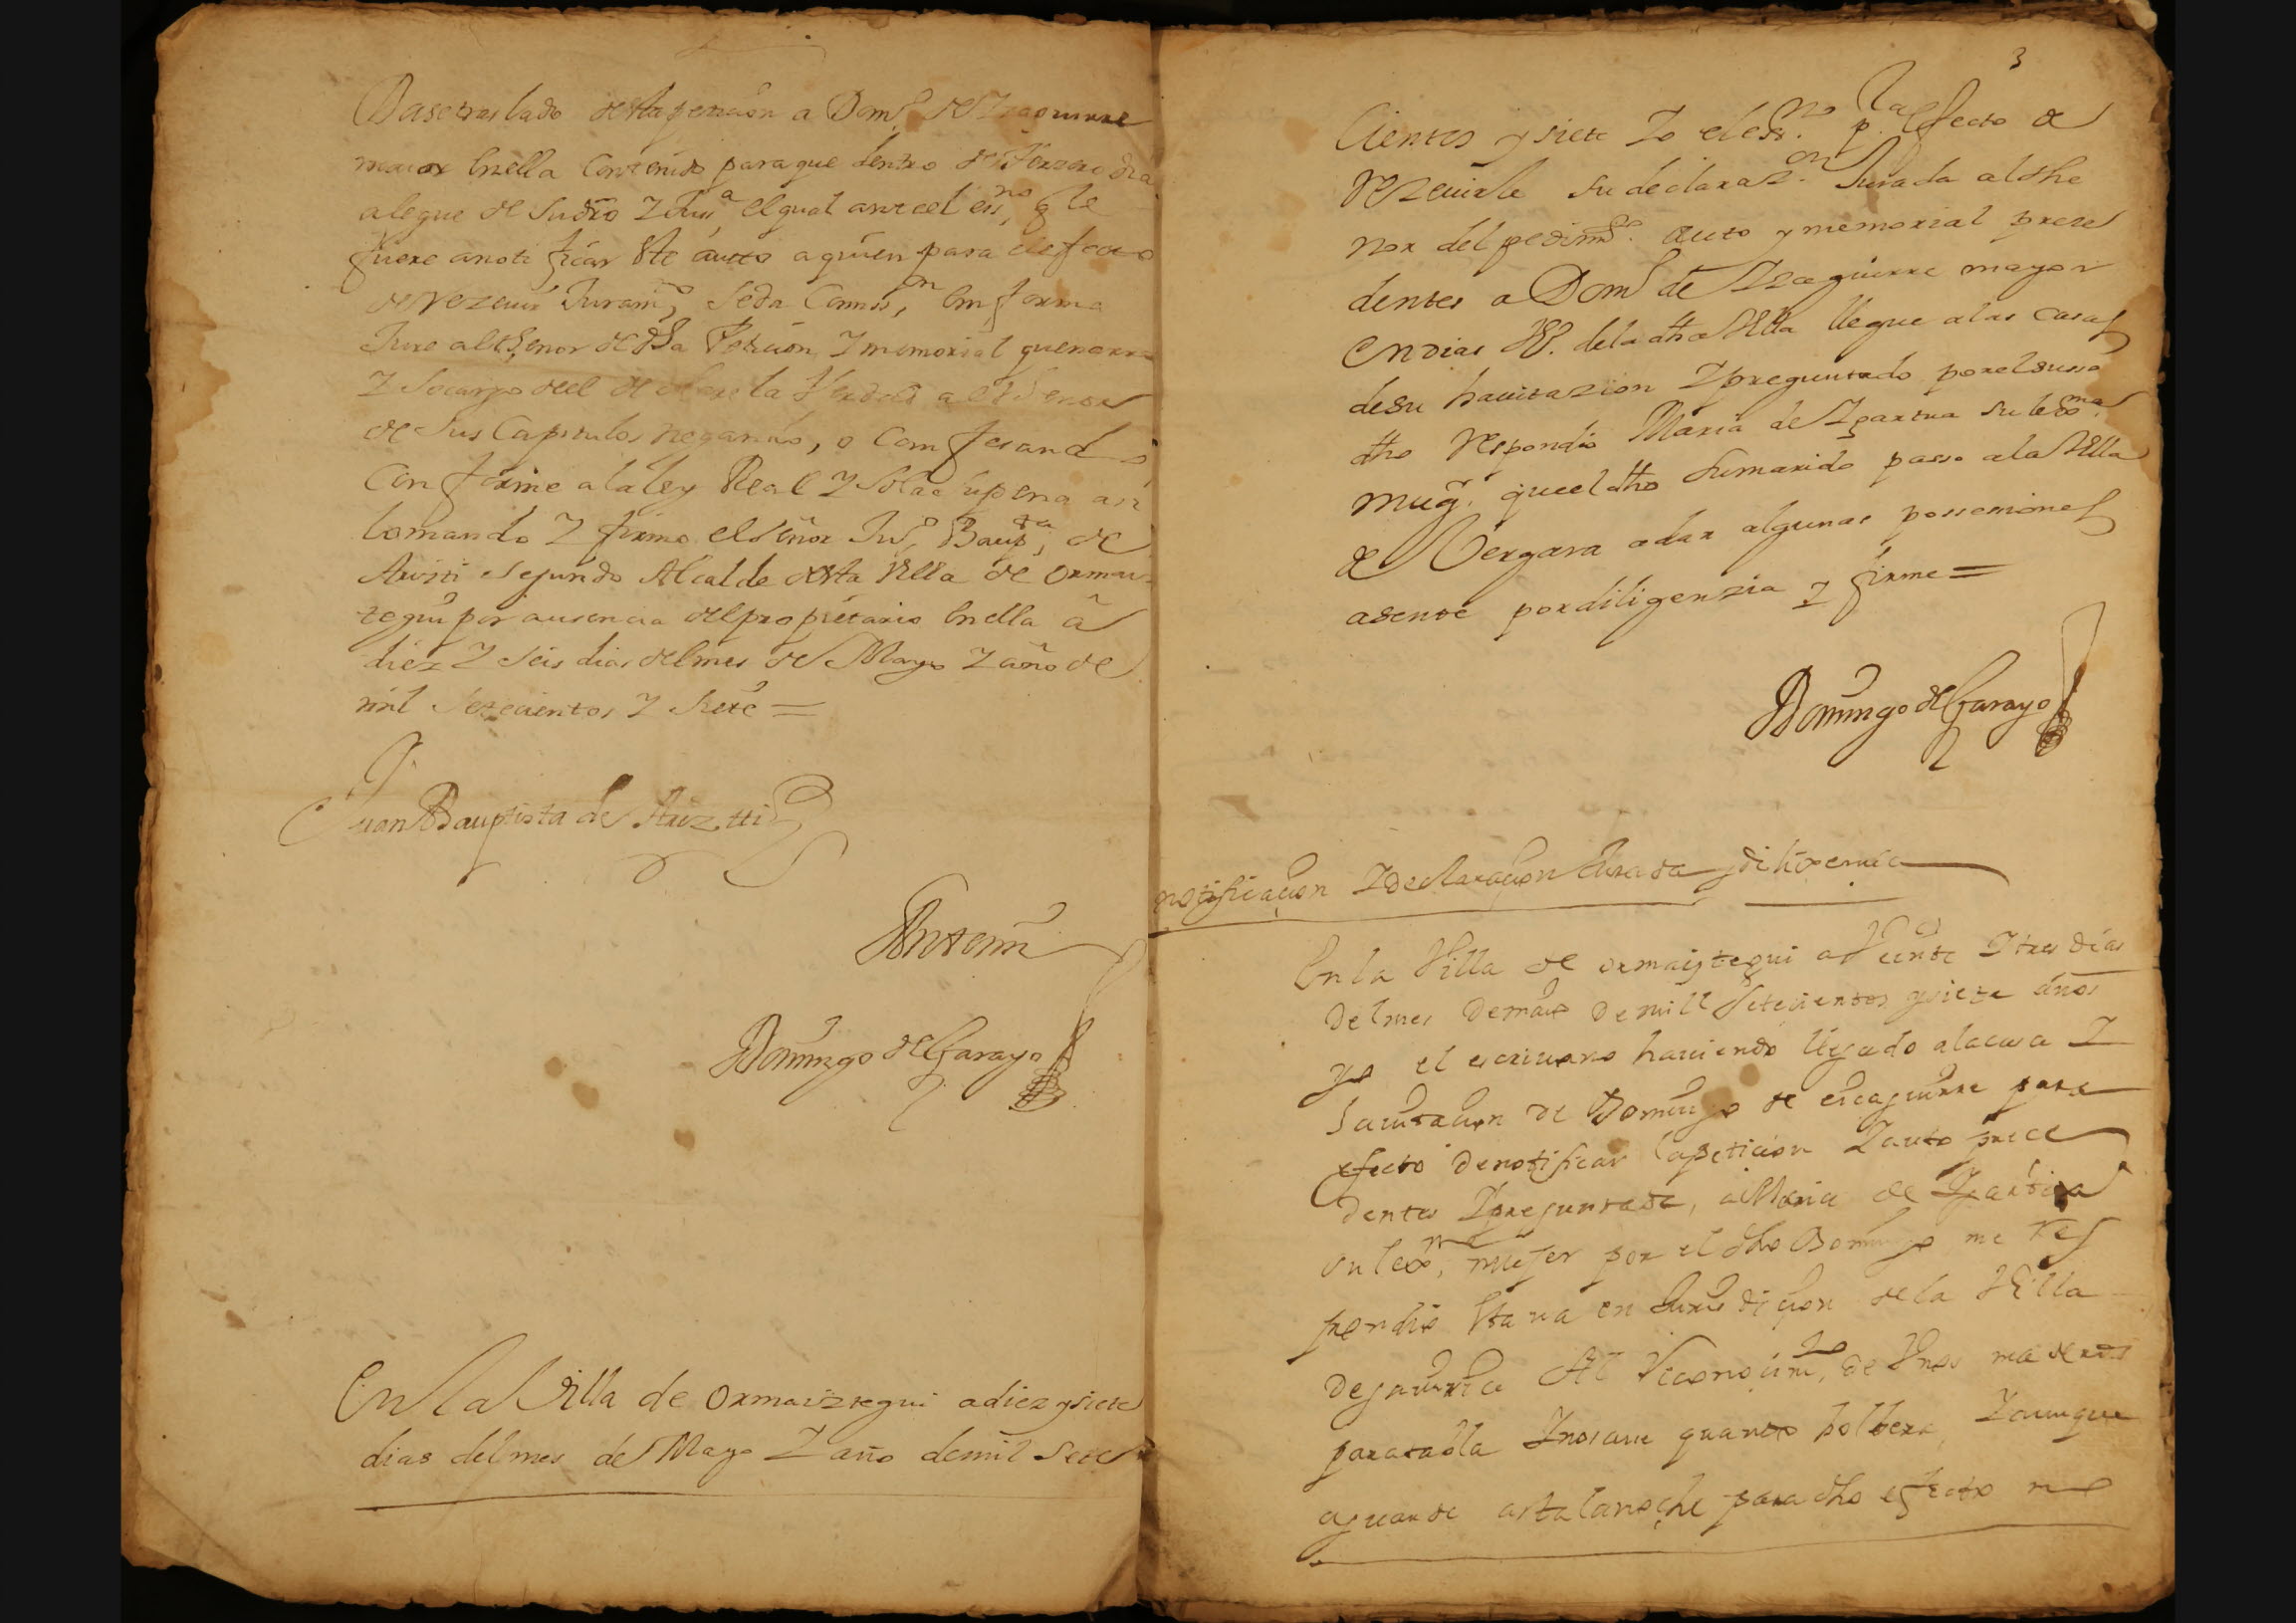 Dase traslado desta peticion a Dom.º de Yzaguirre
maior en ella Contenido para que dentro de terzero dia
alegue de su dro Y Jus.ª el qual ante el ess.no q le
fuere a notificar este auto a quien para el efecto
de rezeuir Juram.to se da Comis.on en forma
Jure al thenor de dha Peticion Y memorial
Y so cargo del de clare la Verdad al thenor
de sus Capitulos negando, o Confesando
Conforme a la ley Real Y so la pena asi
lo mando Y firmo el señor Ju.º Baup.ta de
Aristi segundo Alcalde desta Villa de Ormaiz
tegui por ausencia del propietario en ella a
diez Y seis dias del mes de Mayo Y año de
mil Setecientos Y Siete =
Juan Bauptista de Ariztti
Ante mi
Domingo de Garayo
En la Villa de Ormaiztegui a diez y siete
dias del mes de Mayo Y año de mil Sete
3
cientos y siete Yo el ess.no p.ª efecto de
rezeuirle su declaraz.on Jurada al the
nor del pedim.to auto y memorial preze
dentes a Dom.º de Yzaguirre mayor
en dias Vº. de la dha Villa llegue a las casas
de su hauitazion Y preguntado por el suso
dho respondio Maria de Ygartua su lex.ma
mug.r que el dho su marido passo a la Villa
de Vergara a dar algunas possesiones
asente por diligenzia y firme =
Domingo de Garayo
notificacion Y declaracion Jurada y dilixencia
En la Villa de ormaiztegui a Veinte Y tres dias
del mes de mayo de mill setecientos y siete años
yo el escriuano hauiendo llegado a la casa Y
hauitacion de Domingo de eizaguirre para
efecto de notificar la peticion Y auto prece
dentes Y preguntado, a Maria de Ygartua
su lex.ma mujer por el dho Domingo me res
pondio estaua en Jurisdicion de la Villa
de gauiria Al reconocim.to de Unos maderos
para tabla Y no saue quando bolbera, Y aunque
aguarde asta la noche para dho efecto no